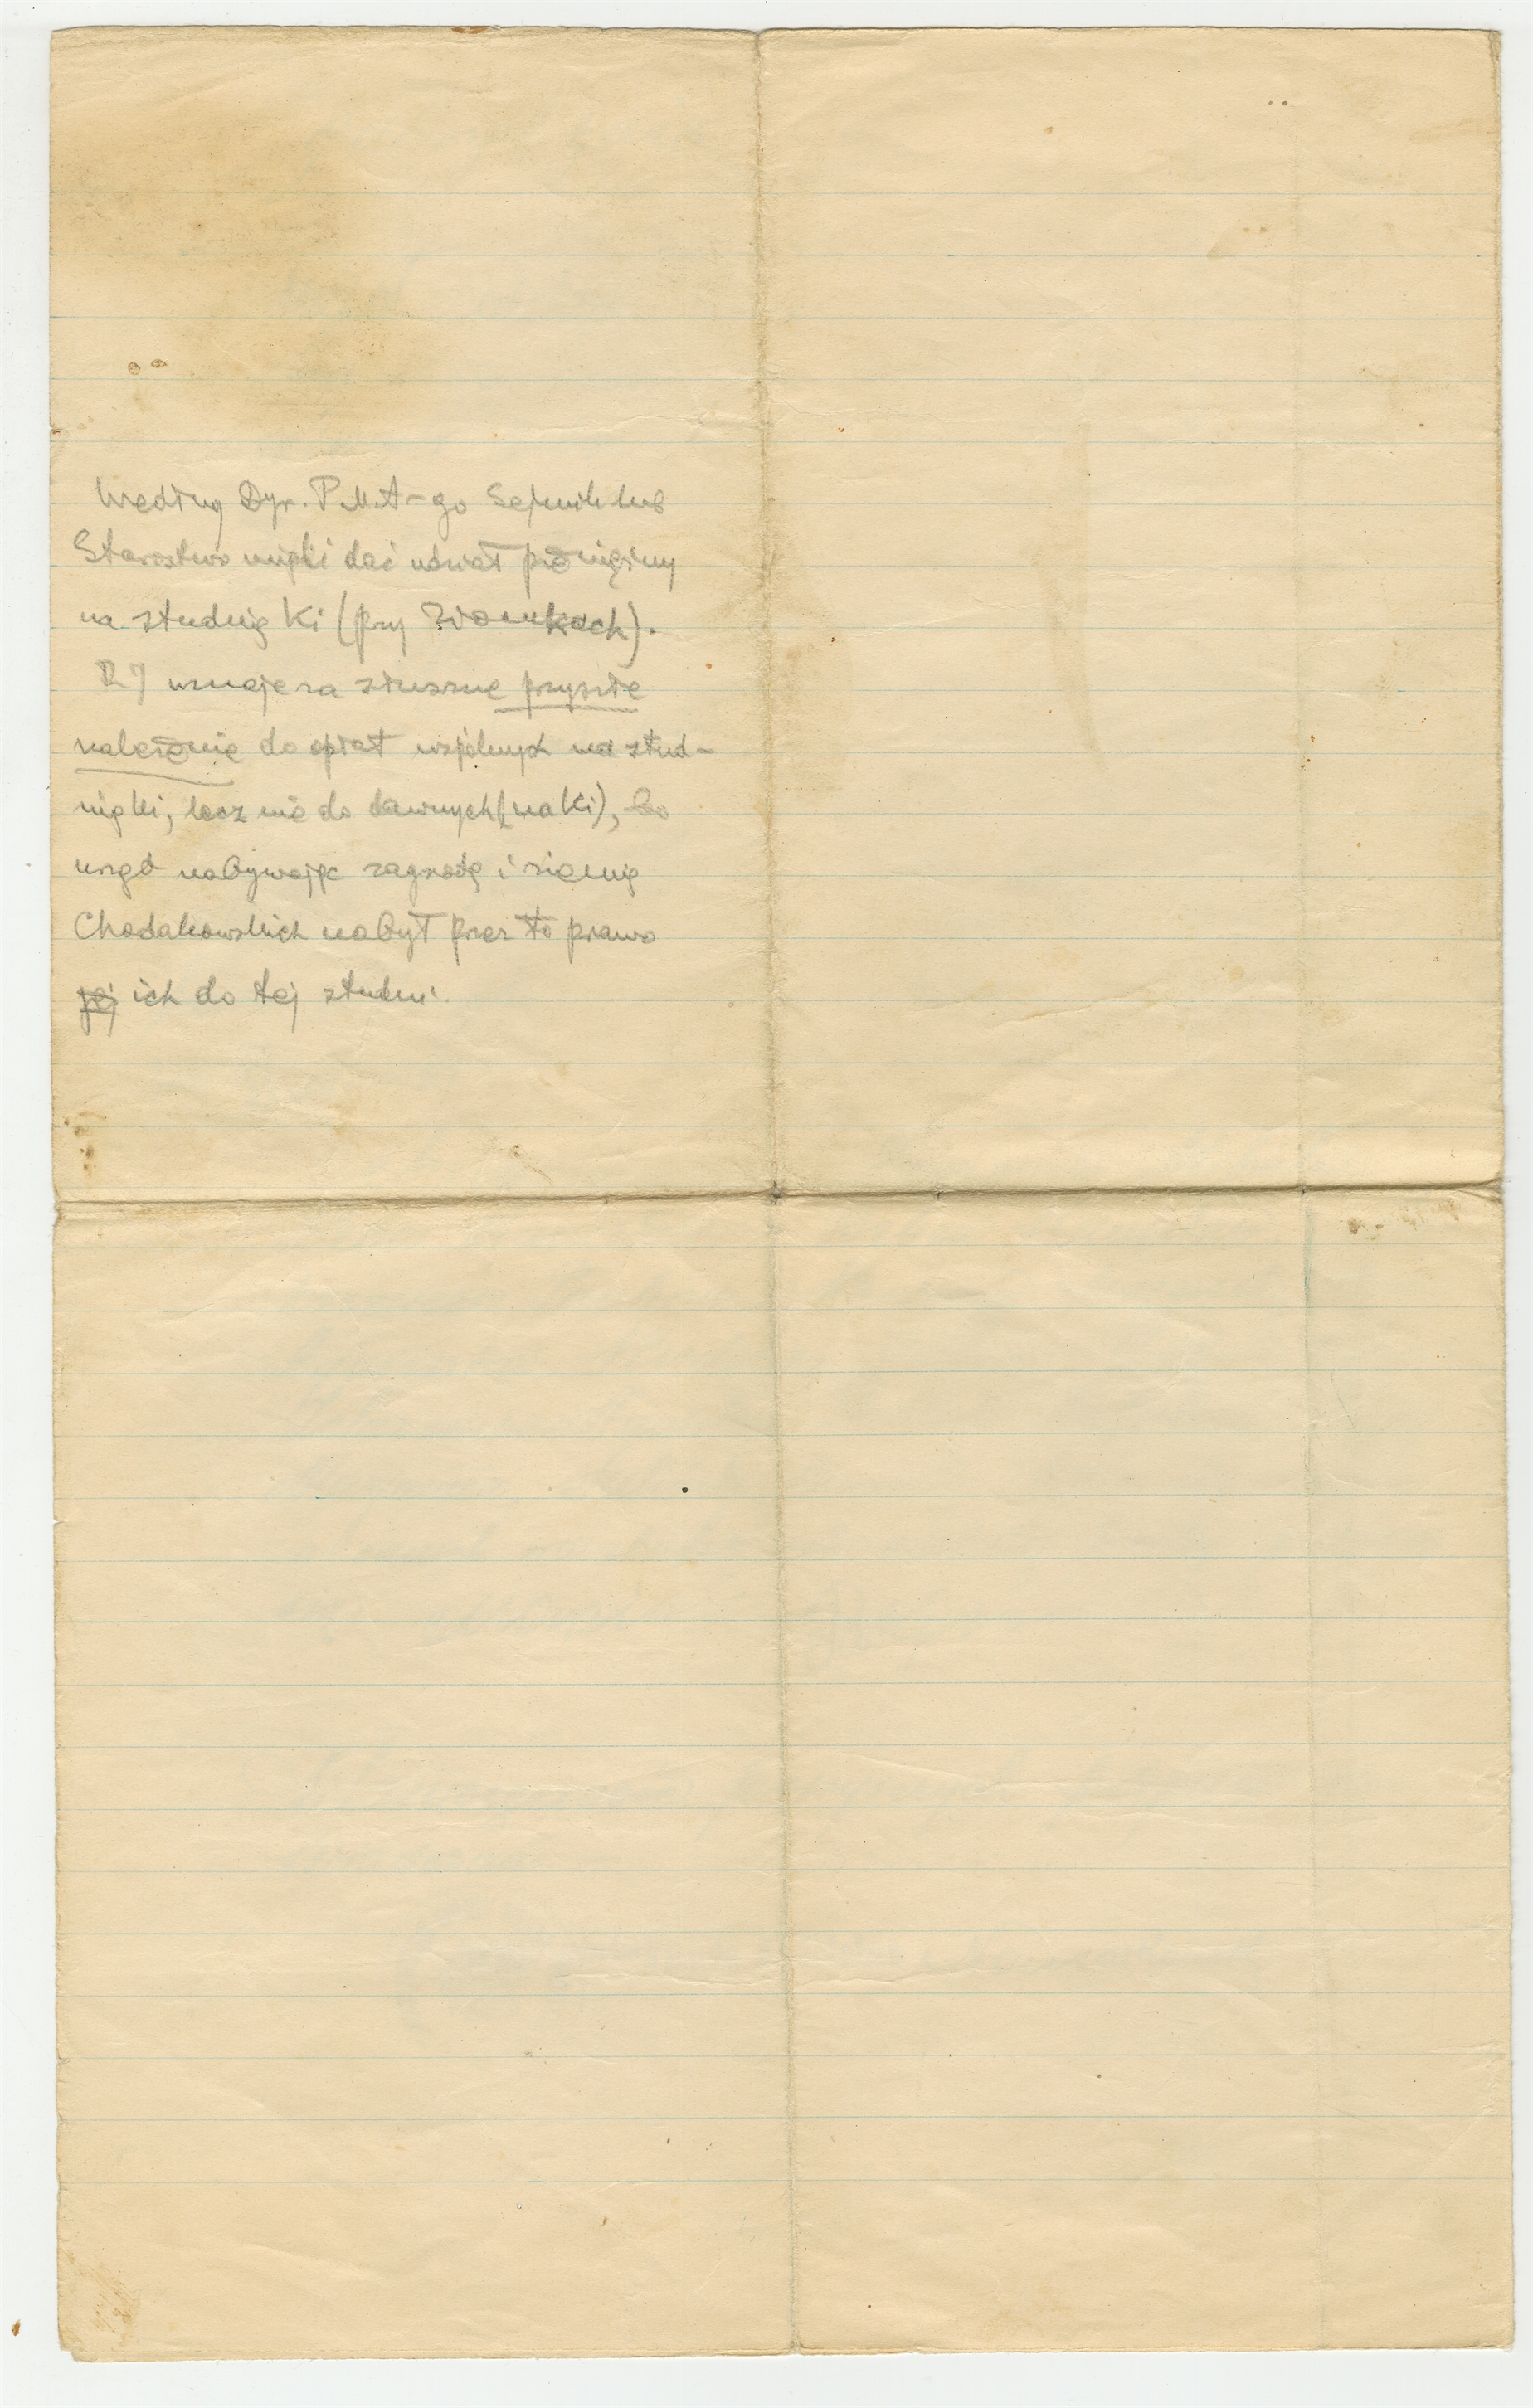 Według Dyr. P.M.A-go Sejmik lub
Starostwo mogli dać udział pieniężny
na studnię Ki (przy
RJ uznaje za słuszne przyszłe
należenie do opłat wspólnych na stud-
nię Ki, lecz nie do dawnych (na Ki), bo
urząd nabywając zagrodę i ziemię
Chodakowskich nabył przez to prawo
jej ich do tej studni.